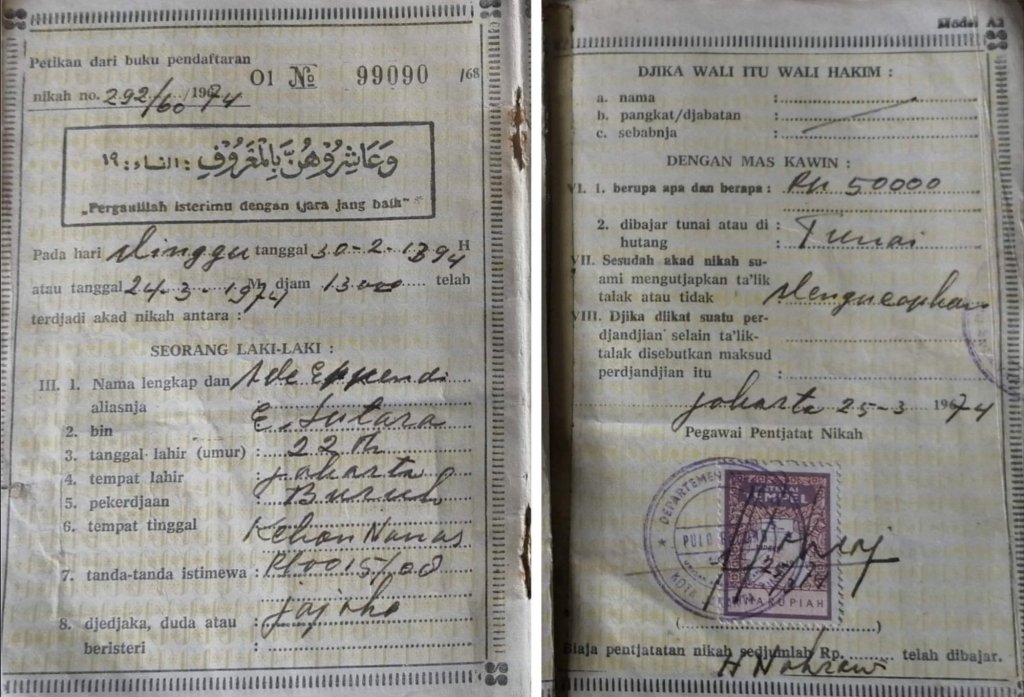 Petikan dari buku pendaftaran
nikah no. 292/60/1974 01 № 99090 /68
وَعَاشِرُوْهُنَّ بِالْمَعْرُوْفِ : النساء : ١٩
„Pergaulilah isterimu dengan tjara jang baik"
Pada hari Minggu tanggal 30-2-1394 H
atau tanggal 24-3-1974 M djam 13.00 telah
terdjadi akad nikah antara :
SEORANG LAKI-LAKI :
III. 1. Nama lengkap dan Ade Eppendi
aliasnja
2. bin E. Sutara
3. tanggal lahir (umur) : 22 th
4. tempat lahir : Jakarta
5. pekerdjaan : Buruh
6. tempat tinggal Kebon Nanas
7. tanda-tanda istimewa : Rt 0015/08
8. djedjaka, duda atau jajaka
beristeri :
Model A2
DJIKA WALI ITU WALI HAKIM :
a. nama :
b. pangkat/djabatan :
c. sebabnja :
DENGAN MAS KAWIN :
VI. 1. berupa apa dan berapa : Rp 50000
2. dibajar tunai atau di : Tunai
hutang
VII. Sesudah akad nikah su-
ami mengutjapkan ta'lik
talak atau tidak Mengucapkan
VIII. Djika diikat suatu per-
djandjian selain ta'lik-
talak disebutkan maksud
perdjandjian itu :
Jakarta 25-3 1974
Pegawai Pentjatat Nikah
DEPARTEMEN
PULO
KOTA
TEMPEL
RUPIAH
(..........)
Biaja pentjatatan nikah sedjumlah Rp. telah dibajar.